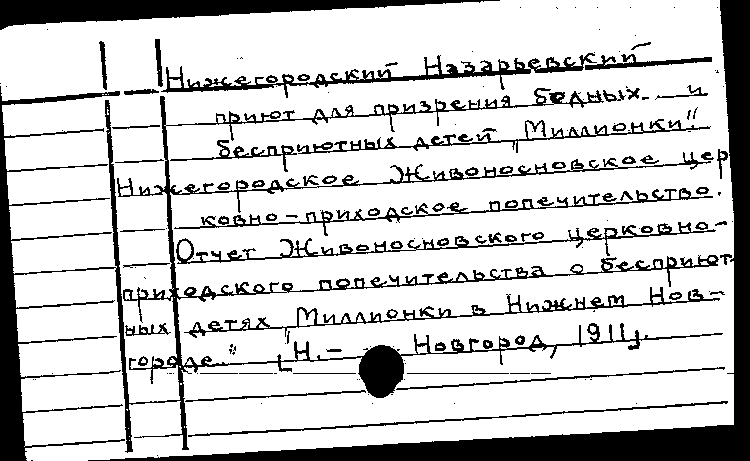 Нижегородский Назарьевский
приют для призрения бедных и
бесприютных детей „Миллионки".
Нижегородское Живоносновское цер
ковно-приходское попечительство.
Отчет Живоносновского церковно-
приходского попечительства о бесприют
ных детях „Миллионки в Нижнем Нов-
городе". [Н.- Новгород, 1911].